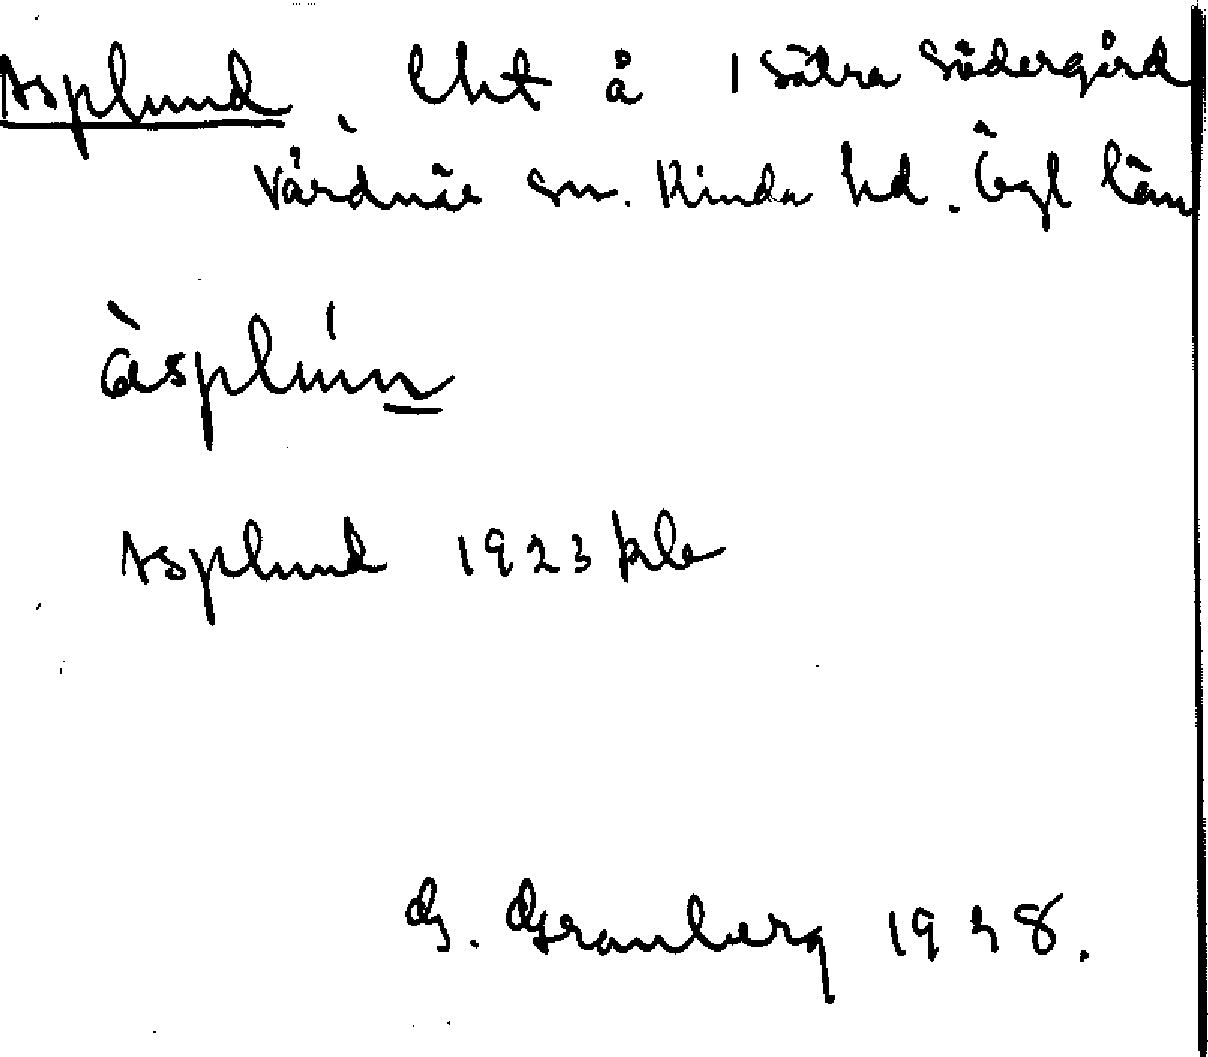 Asplund lht å 1 Sätra Södergård
Vårdnäs sn. Kinda hd. Ögl län
àsplún
Asplund 1923 kle
G. Granberg 1928.